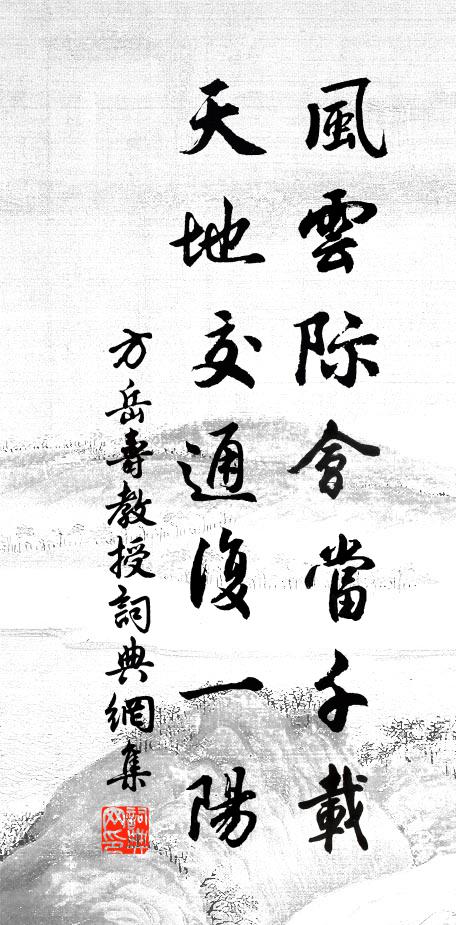 風雲际會當千載
天地交通復一陽
方岳壽教授詞典網集